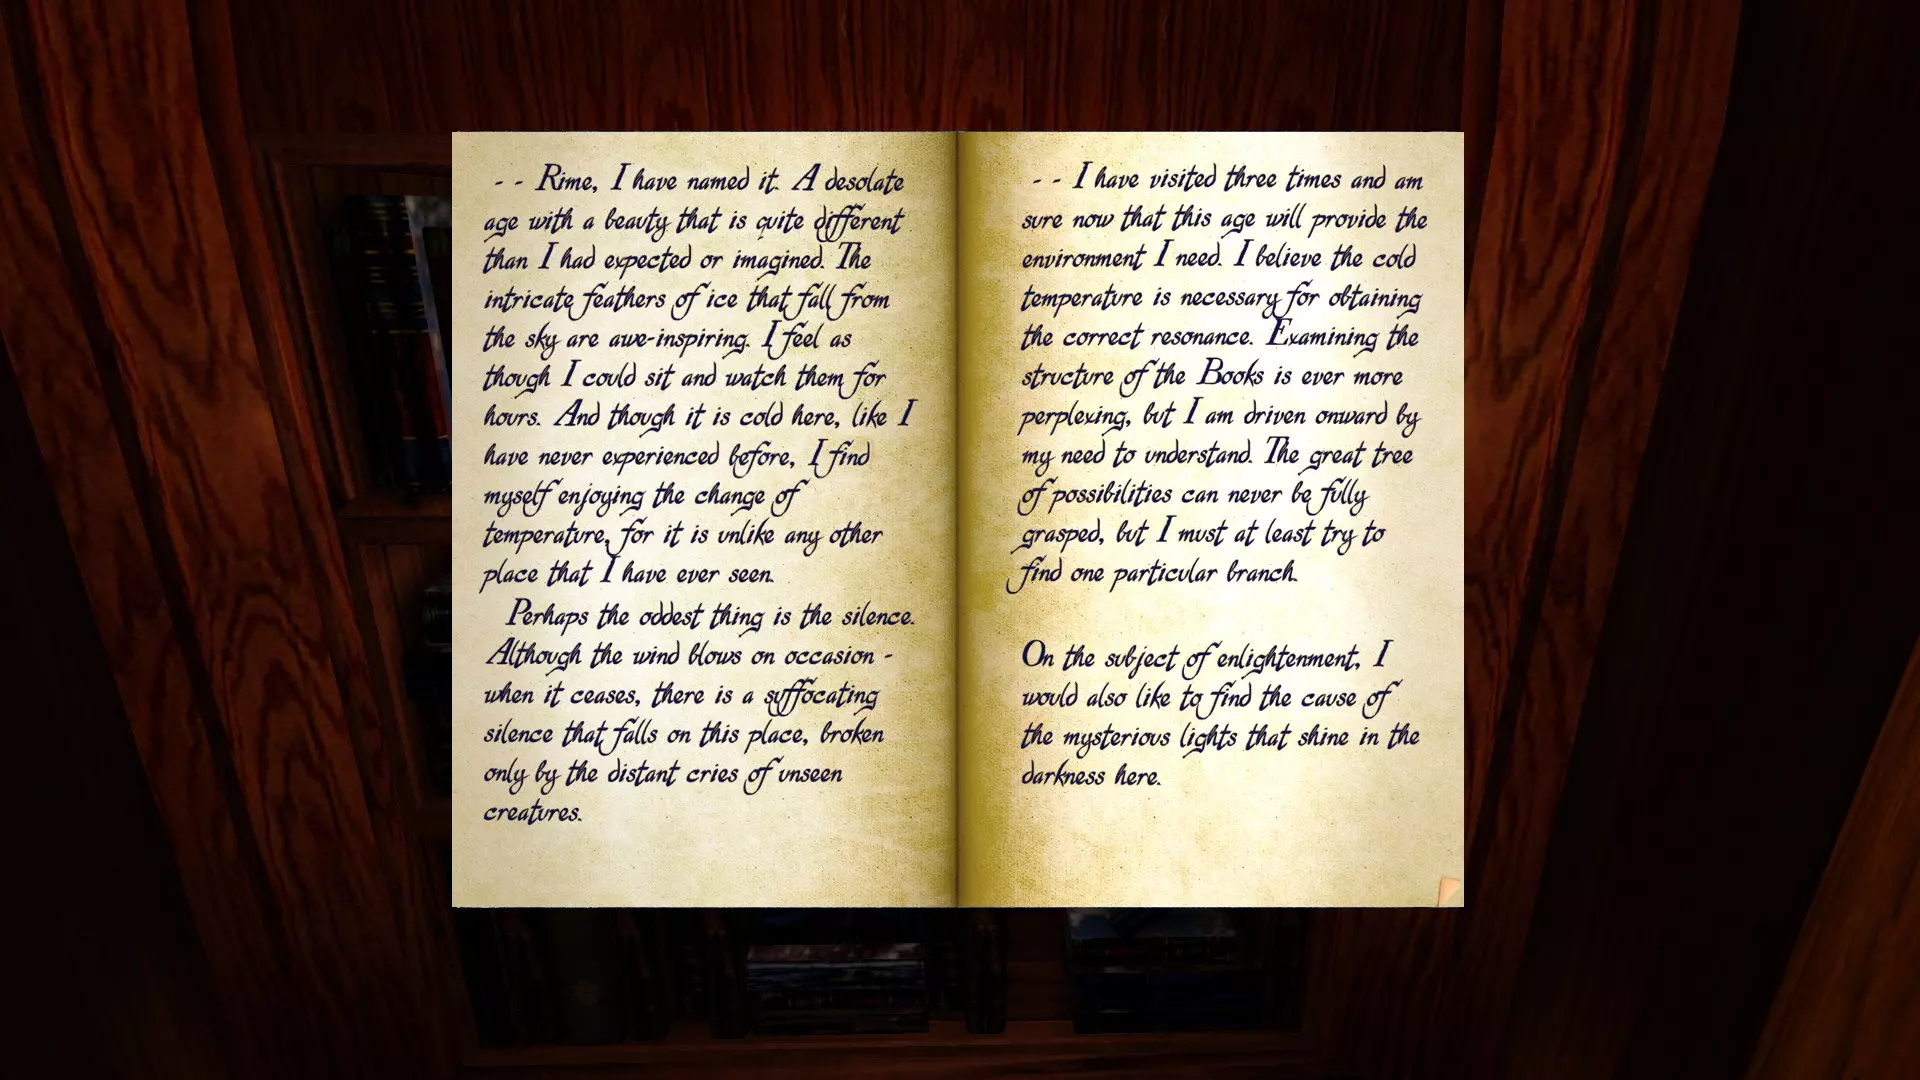 - - Rime, I have named it. A desolate
age with a beauty that is quite different
than I had expected or imagined. The
intricate feathers of ice that fall from
the sky are awe-inspiring. I feel as
though I could sit and watch them for
hours. And though it is cold here, like I
have never experienced before, I find
myself enjoying the change of
temperature, for it is unlike any other
place that I have ever seen.
Perhaps the oddest thing is the silence.
Although the wind blows on occasion -
when it ceases, there is a suffocating
silence that falls on this place, broken
only by the distant cries of unseen
creatures.
- - I have visited three times and am
sure now that this age will provide the
environment I need. I believe the cold
temperature is necessary for obtaining
the correct resonance. Examining the
structure of the Books is ever more
perplexing, but I am driven onward by
my need to understand. The great tree
of possibilities can never be fully
grasped, but I must at least try to
find one particular branch.
On the subject of enlightenment, I
would also like to find the cause of
the mysterious lights that shine in the
darkness here.